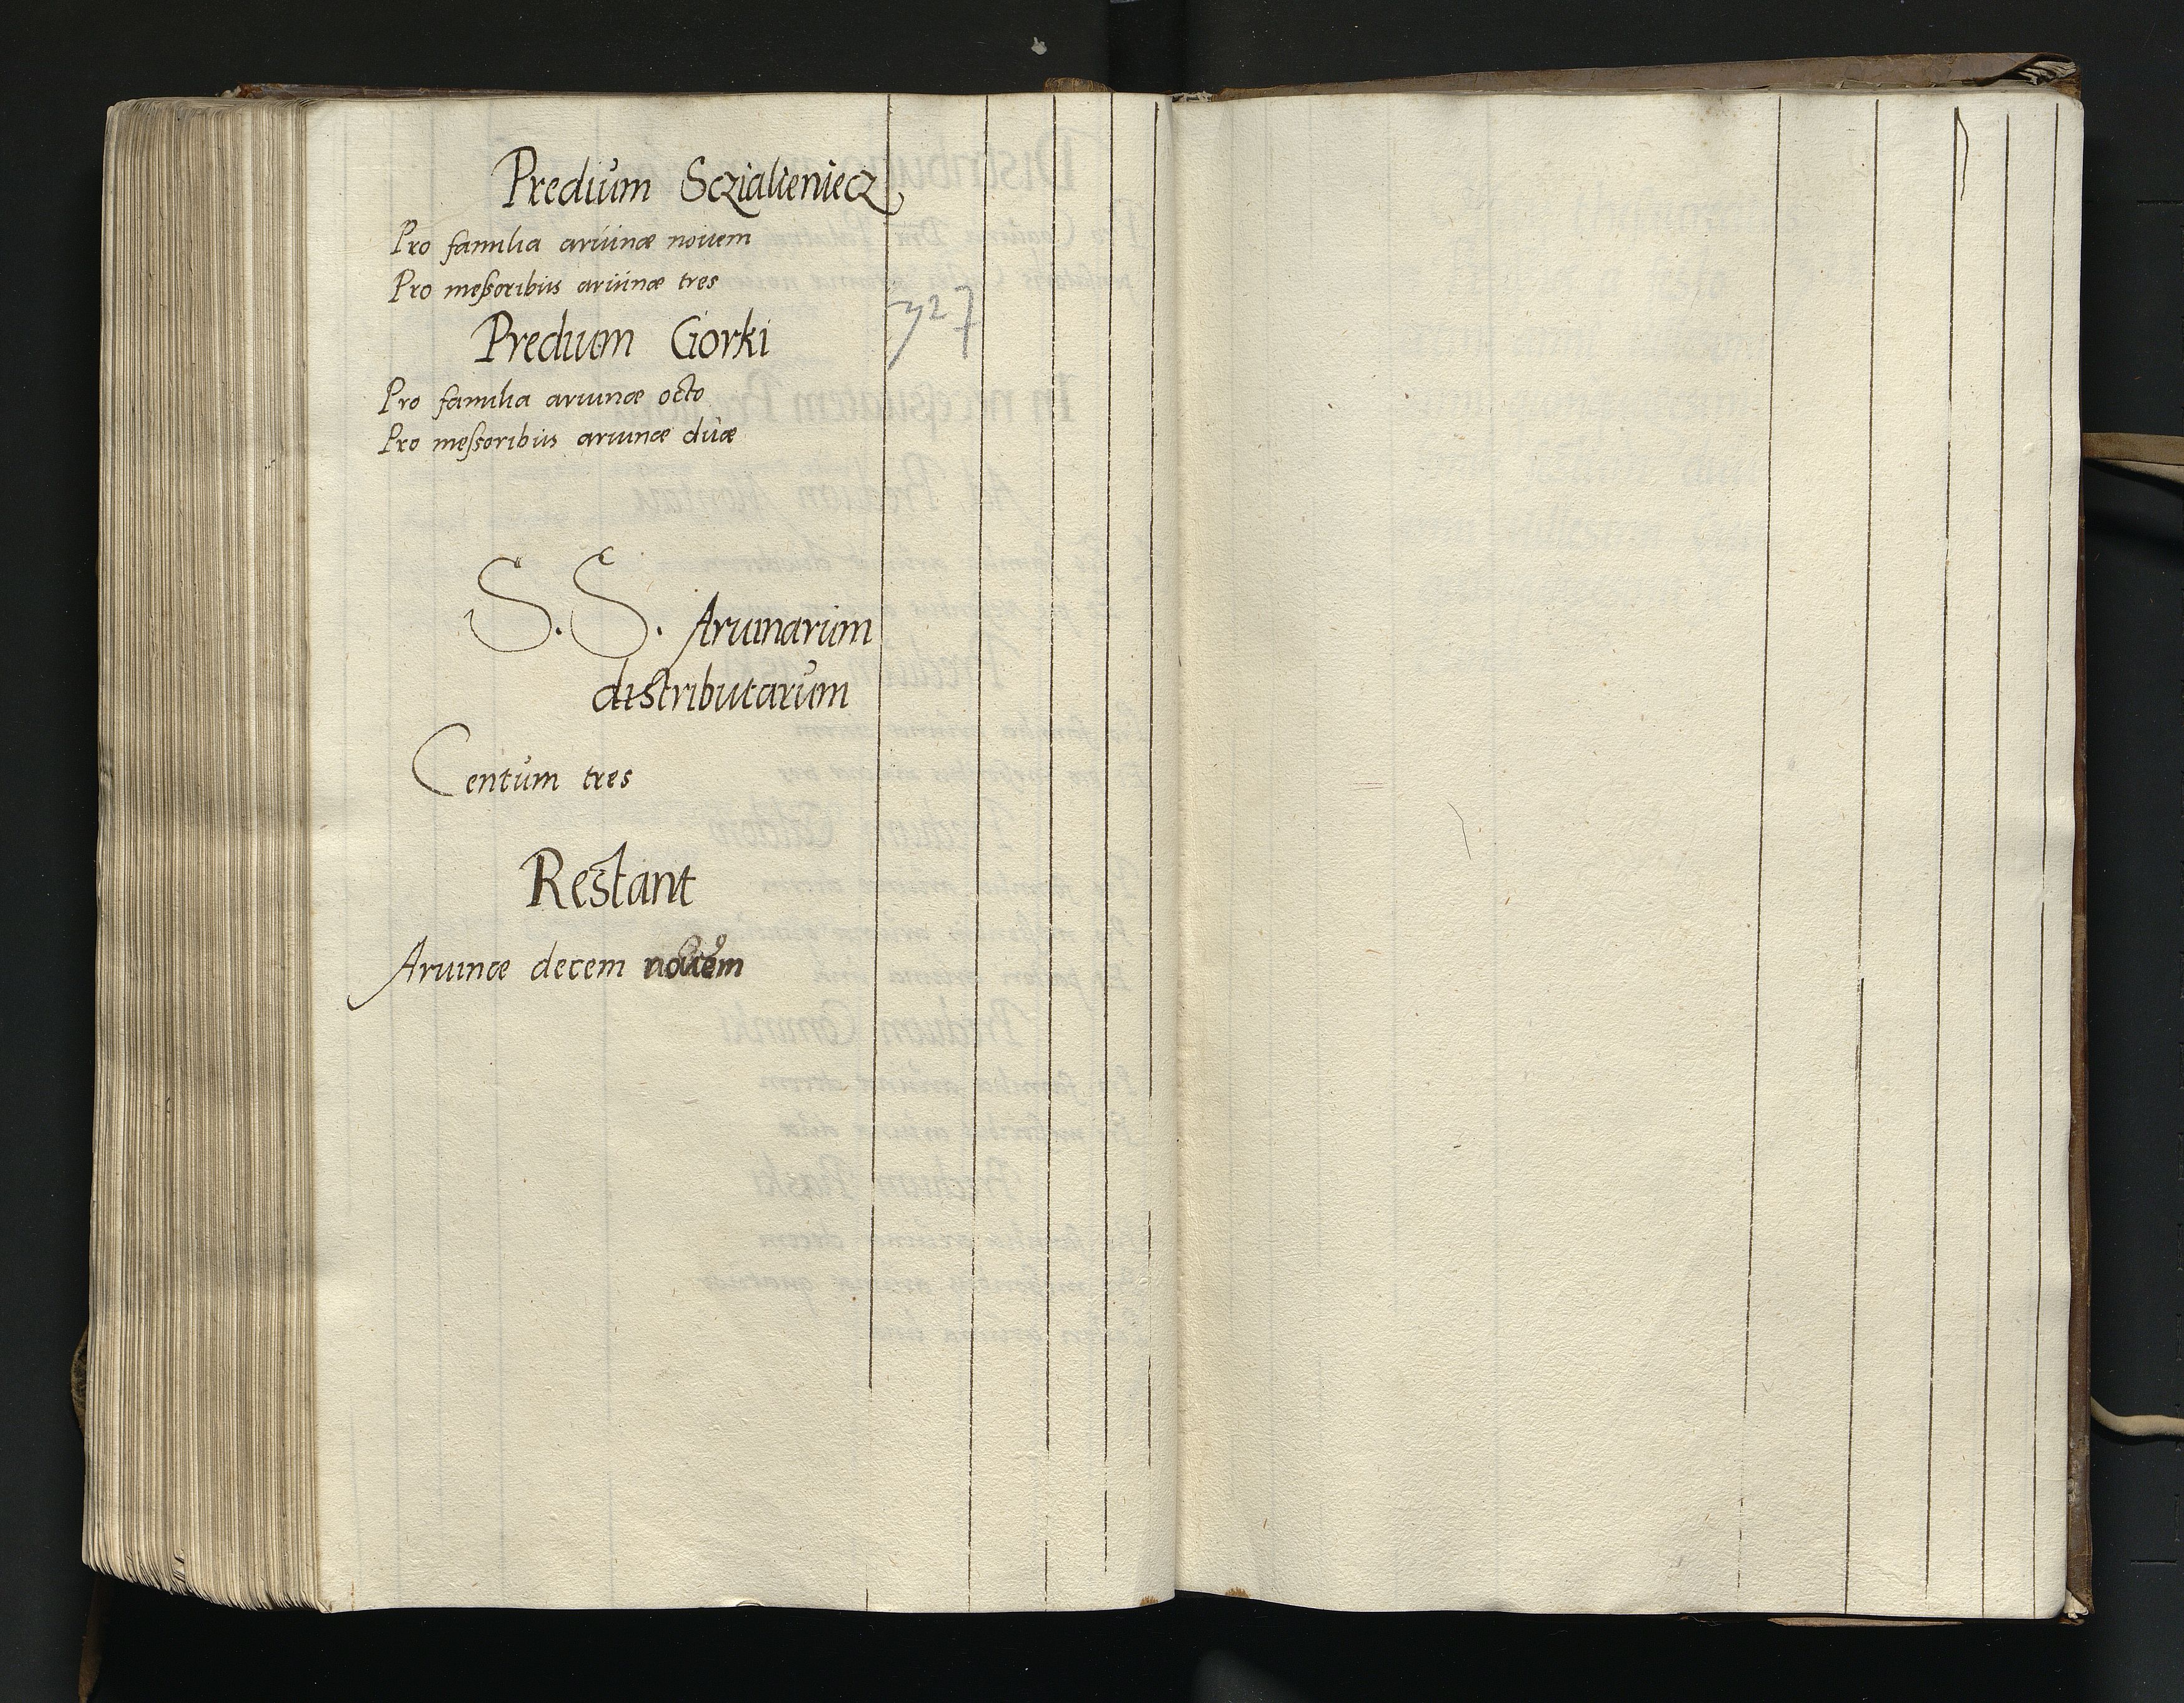 Predium Sczialieniecz
Pro familia aruinæ novem
Pro meßoribus aruinæ tres
Predium Gorki
Pro familia aruinæ octo
Pro meßoribus aruinæ duæ
S. S. Aruinarum
distributarum
Centum tres
Restant
Aruinæ decem novem